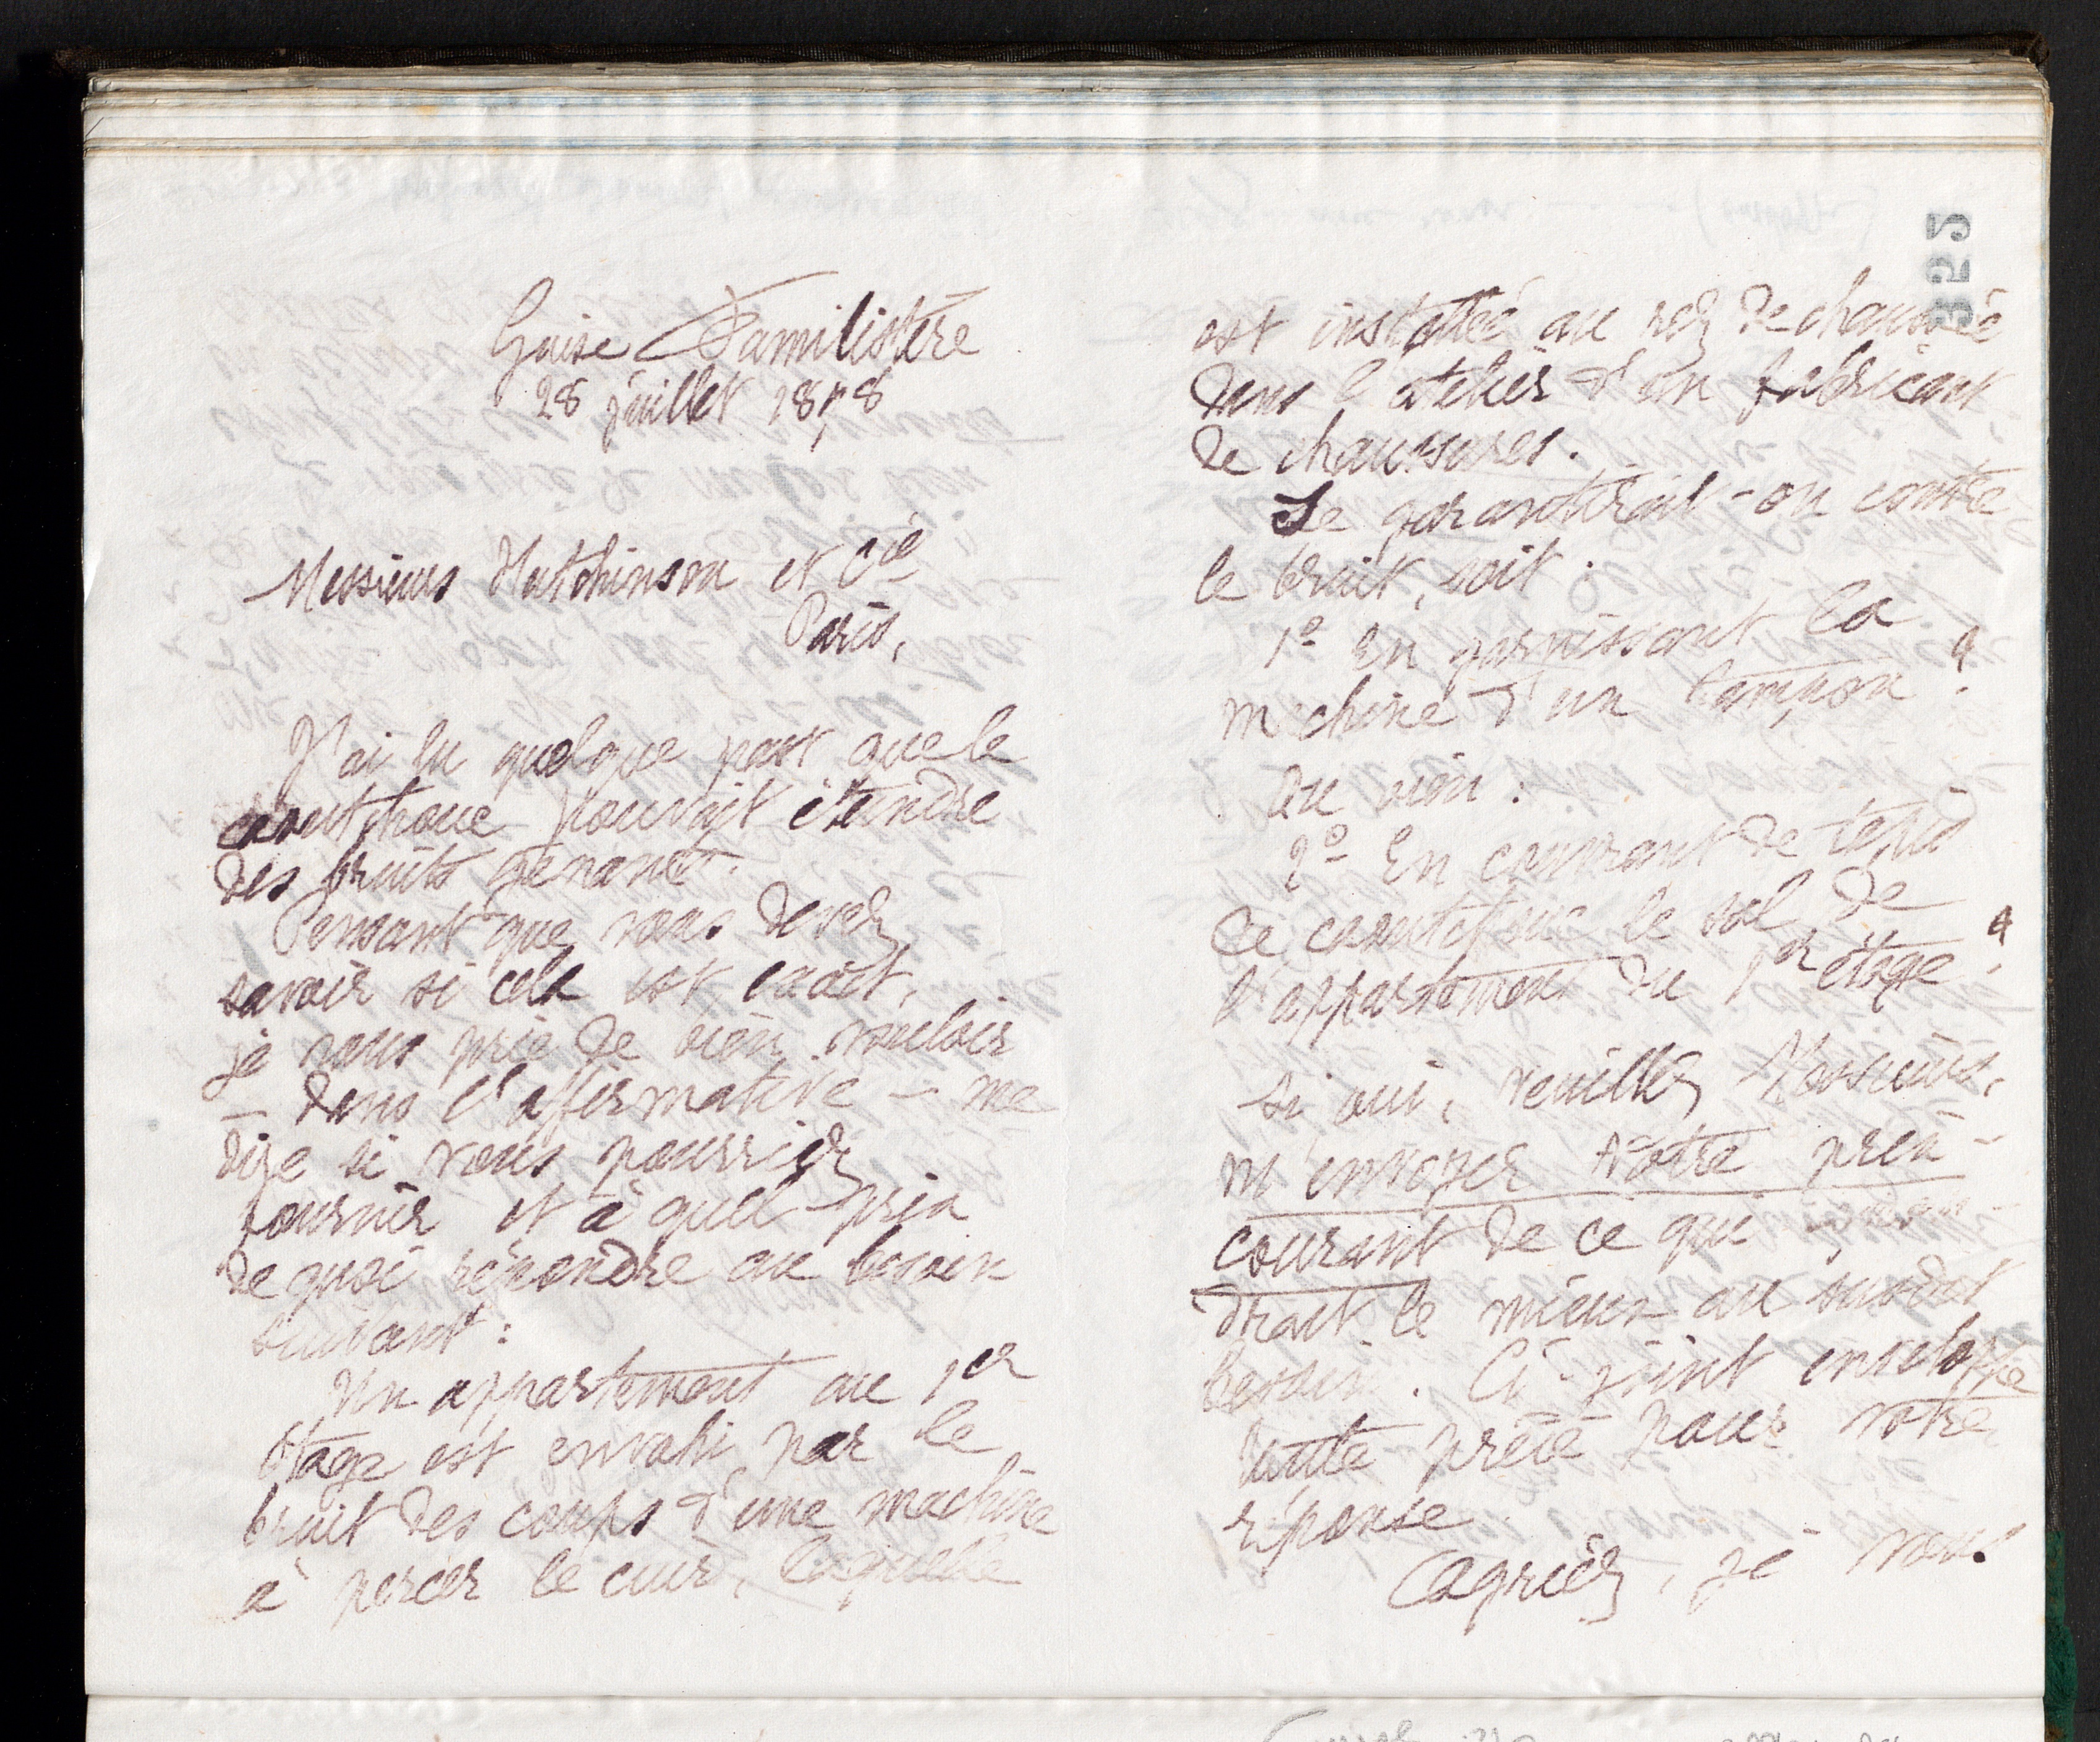 Guise Familistère
28 juillet 1898
Messieurs Hutchinson et Cie
Paris,
J'ai lu quelque part que le
caoutchouc pouvait éteindre
des bruits gênants.
Pensant que vous devez
savoir si cela est exact,
je vous prie de bien vouloir
– dans l'affirmative – me
dire si vous pourriez
fournir et à quel prix
de quoi répondre au besoin
suivant :
Un appartement au 1er
étage est envahi par le
bruit des coups d'une machine
à percer le cuir, laquelle
325
est installée au rez de chaussée
dans l'atelier d'un fabricant
de chaussures.
Se garantirait-on contre
le bruit, soit :
1º En garnissant la
machine d'un tampon ?
Ou bien :
2º En couvrant de tapis
de caoutchouc le sol de
l'appartement du 1er étage ?
Si oui, veuillez Messieurs,
m'envoyer votre prix-
courant de ce que
drait le mieux au susdit
besoin. Ci-joint enveloppe
toute prête pour votre
réponse.
Agréez, je vous